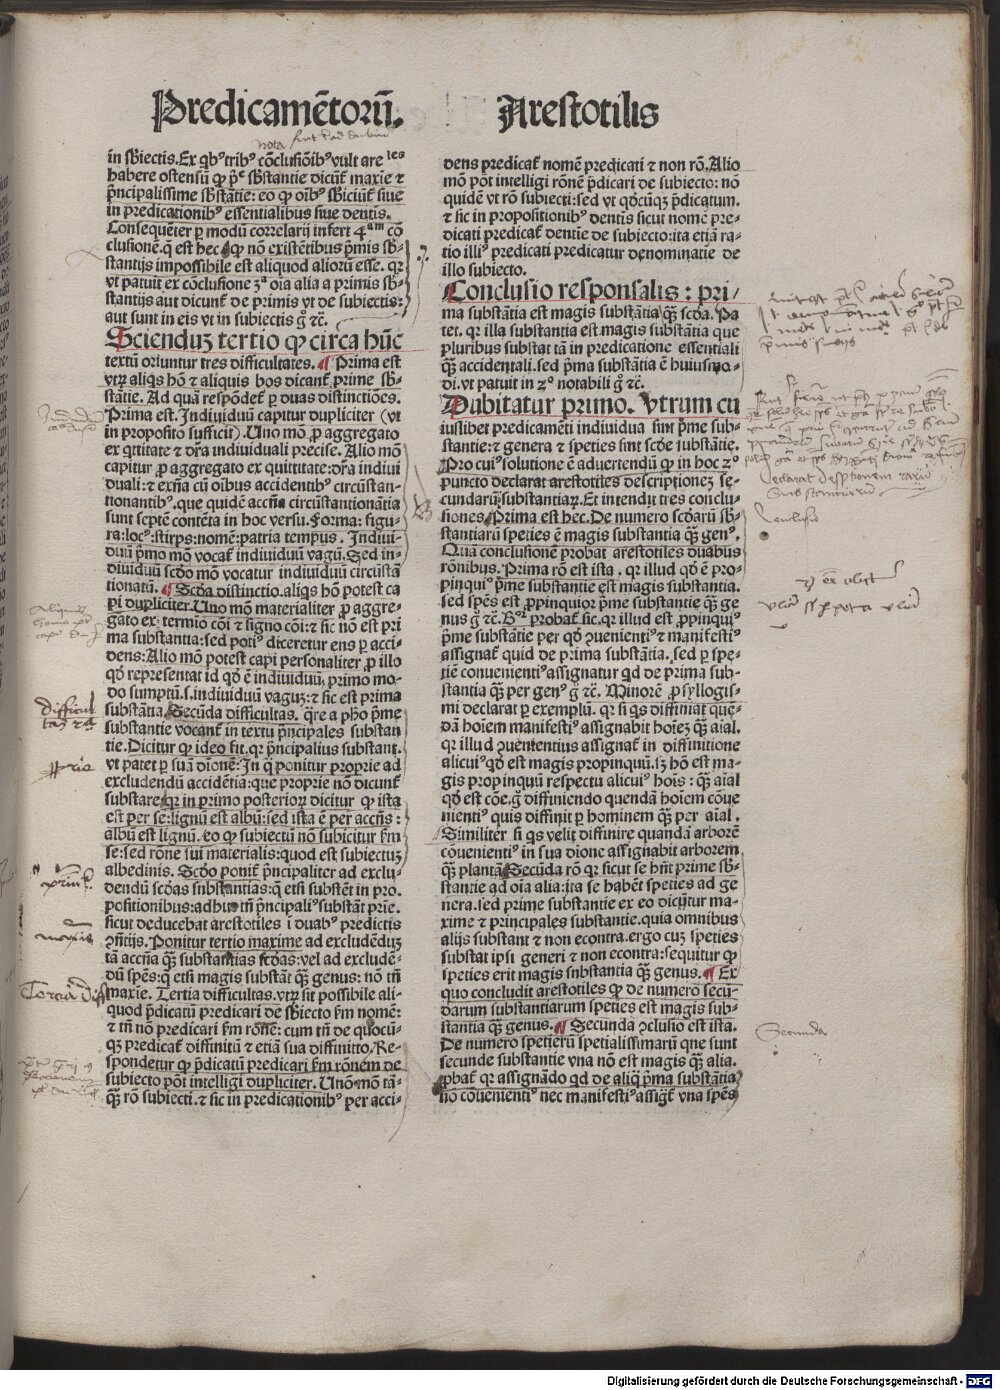 Predicamētorū. Arestotilis
in sbiectis. Ex qbꝰ tribꝰ cōclusiōibꝰ vult are les
habere ostensū ꝙ p̄e sbstantie dicūt maxie ⁊
p̄ncipalissime sbstātie: eo ꝙ oibꝰ sbiciūt siue
in predicationibꝰ essentialibus siue dentis.
Consequēter ꝑ modū correlarij infert 4am cō
clusionē. q̄ est hec. ꝙ nō existētibus p̄mis sb-
stantijs impossibile est aliquod aliorū esse. qr
vt patuit ex cōclusione 3a oia alia a primis sb-
stantijs aut dicunt̄ de primis vt de subiectis:
aut sunt in eis vt in subiectis g̊ ⁊c̄.
Scienduʒ tertio ꝙ circa hūc
textū oriuntur tres difficultates. ¶ Prima est
vtrꝫ aliqs hō ⁊ aliquis bos dicant̄ prime sb-
stātie. Ad quā respōdet̄ ꝑ duas distinctiōes.
Prima est. Indiuiduū capitur dupliciter (vt
in proposito sufficit). Uno mō ꝓ aggregato
ex qttitate ⁊ dr̄a indiuiduali precise. Alio mō
capitur ꝓ aggregato ex quittitate: dr̄a indiui
duali: ⁊ exn̄a cū oibus accidentibꝰ circūstan-
tionantibꝰ. que quidē accn̄a circūstantionātia
sunt septē contēta in hoc versu. Forma: figu-
ra: locꝰ: stirps: nomē: patria tempus. Indiui-
duū p̄mo mō vocat̄ indiuiduū vagū. Sed in-
diuiduū scdo mō vocatur indiuiduū circūstā
tionatū. ¶ Scda distinctio. aliqs hō potest ca
pi dupliciter. Uno mō materialiter ꝓ aggre-
gato ex termīo cōi ⁊ signo cōi: ⁊ sic nō est pri
ma substantia: sed potiꝰ diceretur ens ꝑ acci-
dens: Alio mō potest capi personaliter ꝓ illo
qd representat id qd ē indiuiduū, primo mo-
do sumptū. s. indiuiduū vaguʒ: ⁊ sic est prima
substātia. Secūda difficultas. qre a pho p̄me
substantie vocant̄ in textu p̄ncipales substan
tie. Dicitur ꝙ ideo fit. qr p̄ncipalius substant.
vt patet ꝑ suā dīonē: In q̄ ponitur proprie ad
excludendū accidētia: que proprie nō dicunt̄
substare. qr in primo posterioꝝ dicitur ꝙ ista
est per se: lignū est albū: sed ista ē per accn̄s:
albū est lignū. eo ꝙ subiectū nō subicitur scdm
se: sed rōne sui materialis: quod est subiectuʒ
albedinis. Scdo ponit̄ p̄ncipaliter ad exclu-
dendū scdas snbstantias: q̄ etsi substēt in pro.
positionibus: adhuc tn̄ p̄ncipaliꝰ substāt prīe.
sicut deducebat arestotiles ī duabꝰ predictis
ↄn̄tijs. Ponitur tertio maxime ad excludēduʒ
tā accn̄a qꝫ substantias scdas: vel ad excludē-
dū spēs: q̄ etsi magis substāt̄ qꝫ genus: nō tn̄
maxie. Tertia difficultas. vtrꝫ sit possibile ali-
quod p̄dicatū predicari de sbiecto scdm nomē:
⁊ tn̄ nō predicari scdm rōnē: cum tn̄ de quocū-
qꝫ predicat̄ diffinitū ⁊ etiā sua diffinitio. Re-
spondetur ꝙ p̄dicatū predicari scdm rōnem de
subiecto pōt intelligi dupliciter. Uno mō tā-
qꝫ rō subiecti. ⁊ sic in predicationibꝰ per acci-
dens predicat̄ nomē predicati ⁊ non rō. Alio
mō pōt intelligi rōnē p̄dicari de subiecto: nō
quidē vt rō subiecti: sed vt qd̄cūqꝫ p̄dicatum.
⁊ sic in propositionibꝰ dentis sicut nomē pre-
dicati predicat̄ dentīe de subiecto: ita etiā ra-
tio illiꝰ predicati predicatur denominatie de
illo subiecto.
Conclusio responsalis: pri/
ma substātia est magis substātia qꝫ scda. Pa
tet. qr illa substantia est magis substātia que
pluribus substat tā in predicatione essentiali
qꝫ accidentali. sed p̄ma substātia ē huiusmo-
di. vt patuit in 2o notabili g̊ ⁊c̄.
Dubitatur primo. Utrum cu
iuslibet predicamēti indiuidua sint p̄me sub-
stantie: ⁊ genera ⁊ speties sint scde substātie.
Pro cuiꝰ solutione ē aduertendū ꝙ in hoc 2o
puncto declarat arestotiles descriptioneʒ se-
cundarū substantiaꝝ. Et intendit tres conclu-
siones. Prima est hec. De numero scdarū sb-
stantiarū speties ē magis substantia qꝫ genꝰ.
Quā conclusionē probat arestotiles duabus
rōnibus. Prima rō est ista. qr illud qd ē pro-
pinquiꝰ p̄me substantie est magis substantia.
sed spēs est ꝓpinquior p̄me substantie qꝫ ge
nus g̊ ⁊c̄. Bor probat̄ sic. qr illud est ꝓpinquiꝰ
p̄me substātie per qd ↄuenientiꝰ ⁊ manifestiꝰ
assignat̄ quid de prima substātia. sed ꝑ spe-
tiē conuenientiꝰ assignatur qd de prima sub-
stantia qꝫ per genꝰ g̊ ⁊c̄. Minorē ꝓ syllogis-
mi declarat ꝑ exemplū. qr si qs diffiniat que-
dā hoiem manifestiꝰ assignabit hoieʒ qꝫ aīal.
qr illud ↄuenientius assignat̄ in diffinitione
alicuiꝰ qd est magis propinquū. sʒ hō est ma-
gis propinquū respectu alicuiꝰ hoīs: qꝫ aīal
qd est cōe. g̊ diffiniendo quendā hoiem cōue
nientiꝰ quis diffinit ꝑ hominem qꝫ per aīal.
Similiter si qs velit diffinire quandā arborē
cōuenientiꝰ in sua dīone assignabit arborem
qꝫ plantā. Secūda rō qr sicut se hn̄t prime sb-
stantie ad oia alia: ita se habēt speties ad ge
nera. sed prime substantie ex eo dicūtur ma-
xime ⁊ principales substantie. quia omnibus
alijs substant ⁊ non econtra. ergo cuʒ speties
substat ipsi generi ⁊ non econtra: sequitur ꝙ
speties erit magis snbstantia qꝫ genus. ¶ Ex
quo concludit arestotiles ꝙ de numero secū-
darum substantiarum speties est magis sub-
stantia qꝫ genus. ¶ Secunda ↄclusio est ista.
De numero spetierū spetialissimarū qne sunt
secunde substantie vna nō est magis qꝫ alia.
ꝓbat̄ qr assignādo qd de aliq̄ p̄ma substātia
nō cōuenientiꝰ nec manifestiꝰ assigt̄ vna spēs
nota
difficul
tas 2a
Secunda
Digitalisierung gefördert durch die Deutsche Forschungsgemeinschaft - DFG